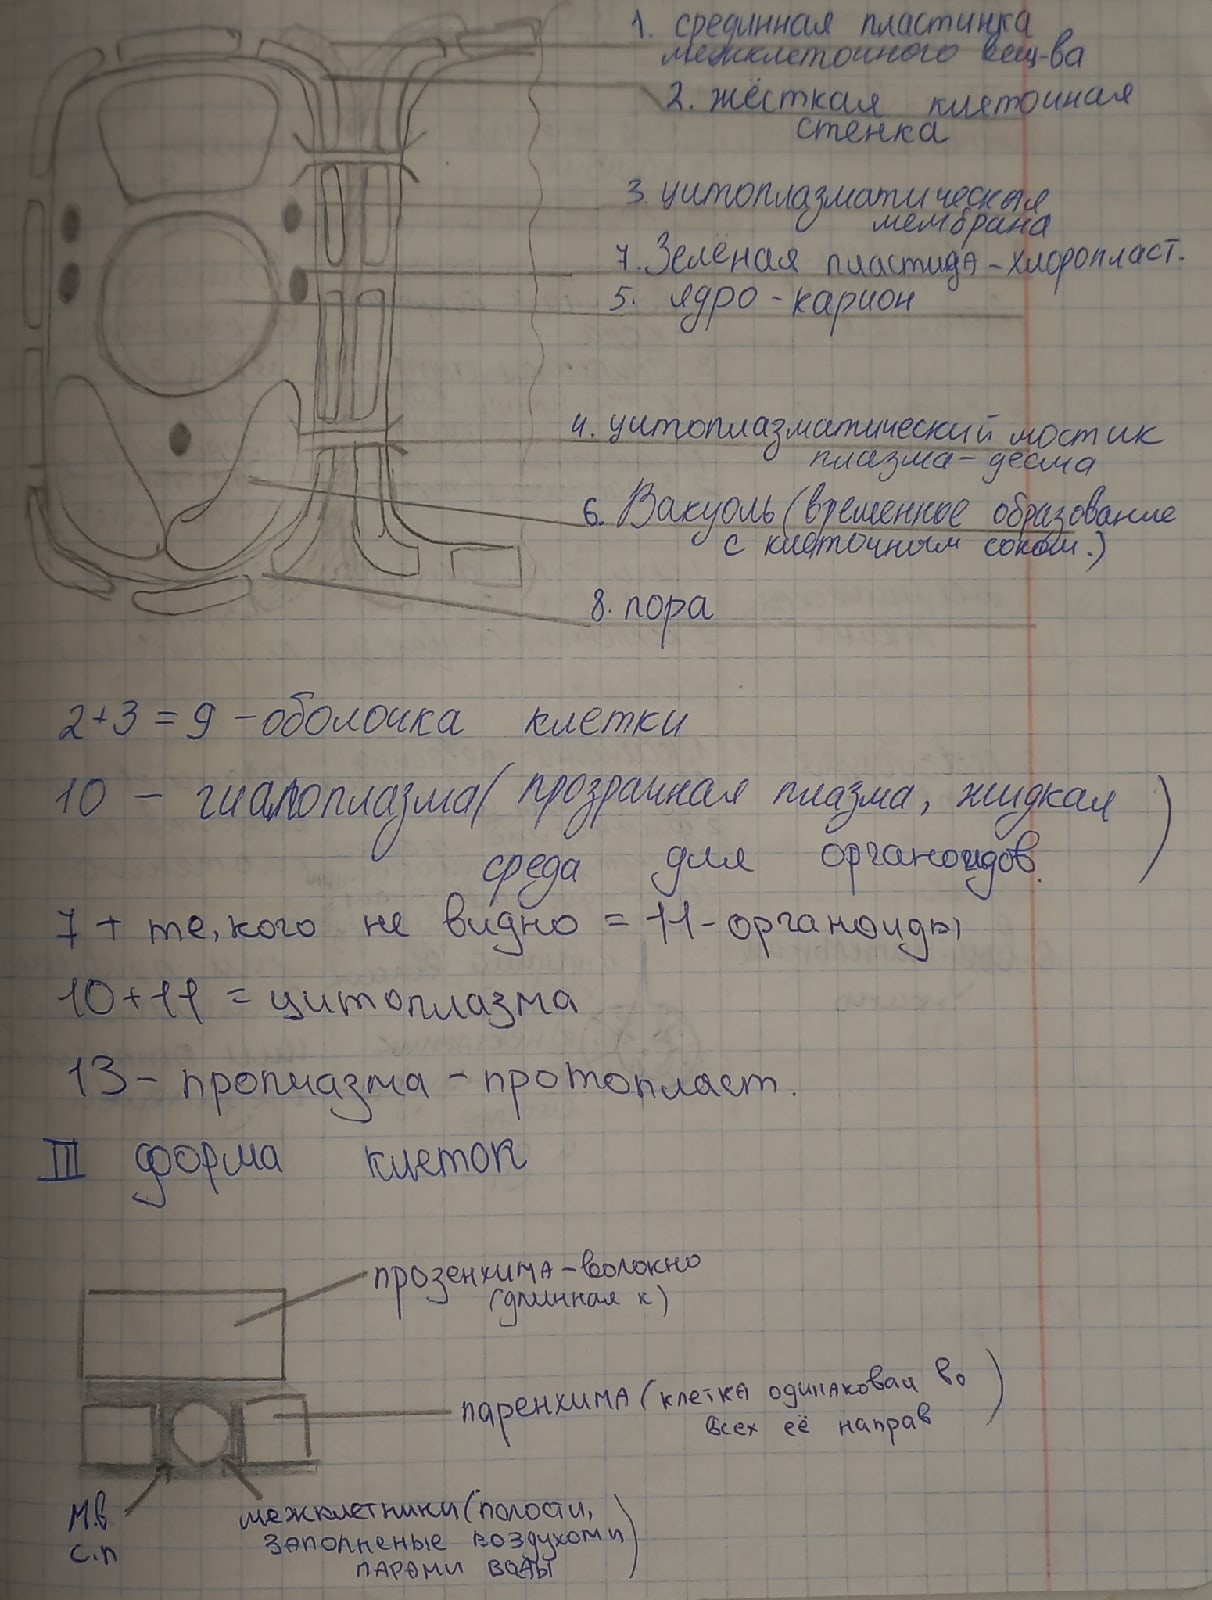 1. срединная пластинка
межклеточного вещ-ва
2. жёсткая клеточная
стенка
3. цитоплазматическая
мембрана
7. Зелёная пластида - хлоропласт.
5. ядро - карион
4. цитоплазматический мостик
плазма - десма
6. Вакуоль (временное образование
с клеточным соком.)
8. пора
2+3 = 9 - оболочка клетки
10 - гиалоплазма (прозрачная плазма, жидкая
среда для органоидов.)
7 + те, кого не видно = 11 - органоиды
10+11 = цитоплазма
13 - проплазма - протопласт.
III форма клеток
прозенхима - волокно
(длинная к)
паренхима (клетка одинаковая во
всех её направ)
М.в
с.п
межклетники (полости,
заполненые воздухом и
парами воды)